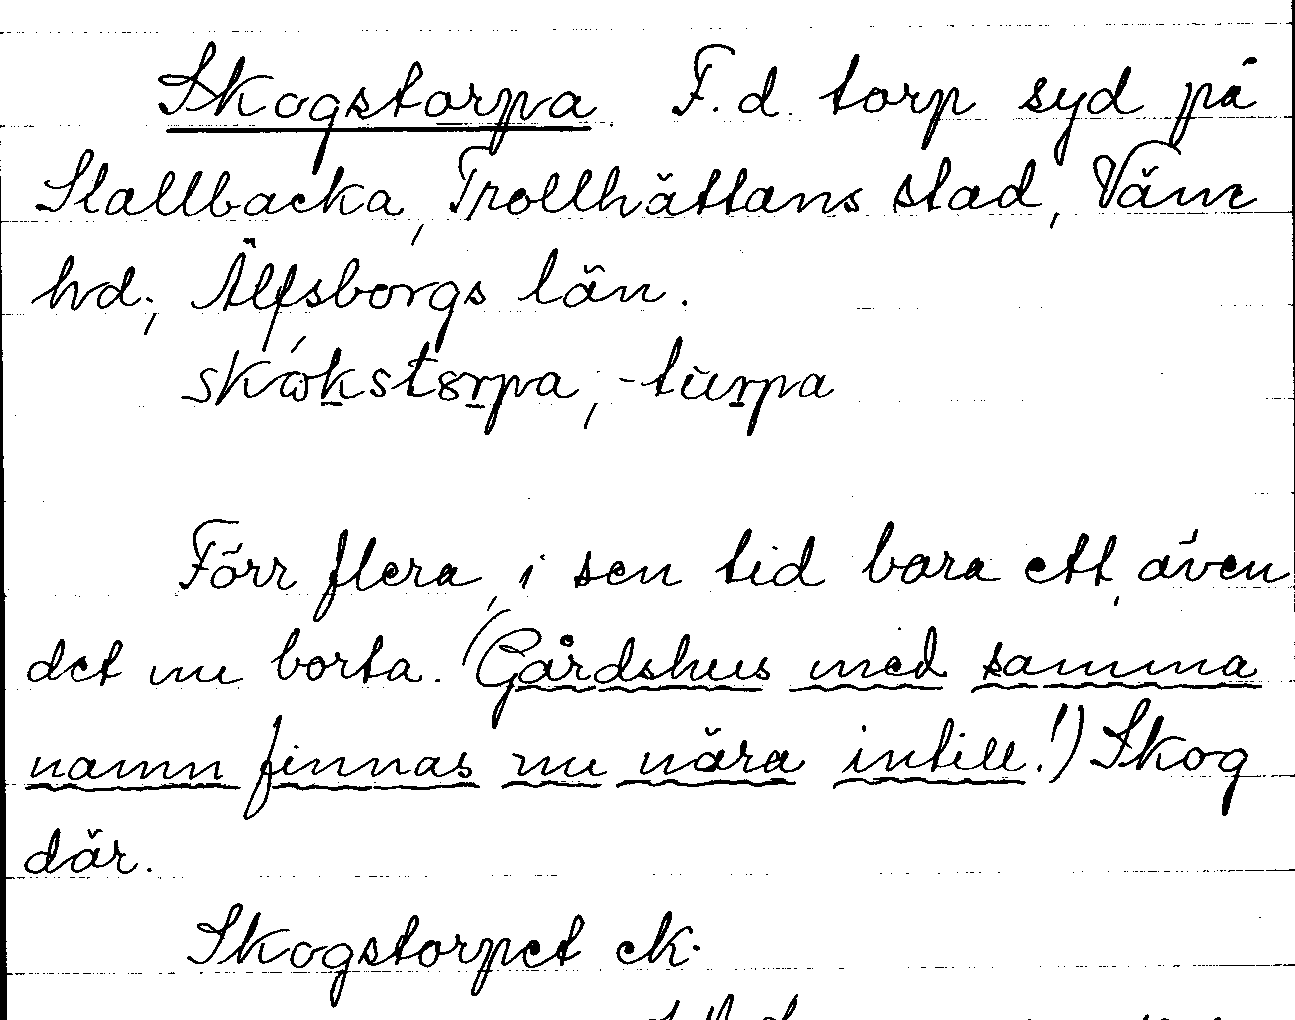 Skogstorpa F.d. torp syd på
Stallbacka, Trollhättans stad, Väne
hd., Älfsborgs län.
skωkstorpa, -turpa
Förr flera, i sen tid bara ett, även
det nu borta. (Gårdshus med samma
namn finnas nu nära intill!) Skog
där.
Skogstorpet ek.